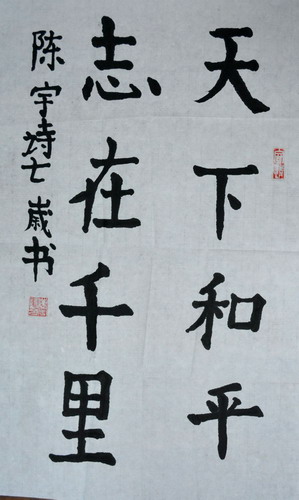 天下和平
志在千里
陈宇诗七岁书